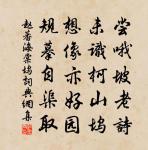 嘗哦坡老詩
未識柯山塢
想像亦好园
規摹自渠取
趙蕃海棠塢詞典網集